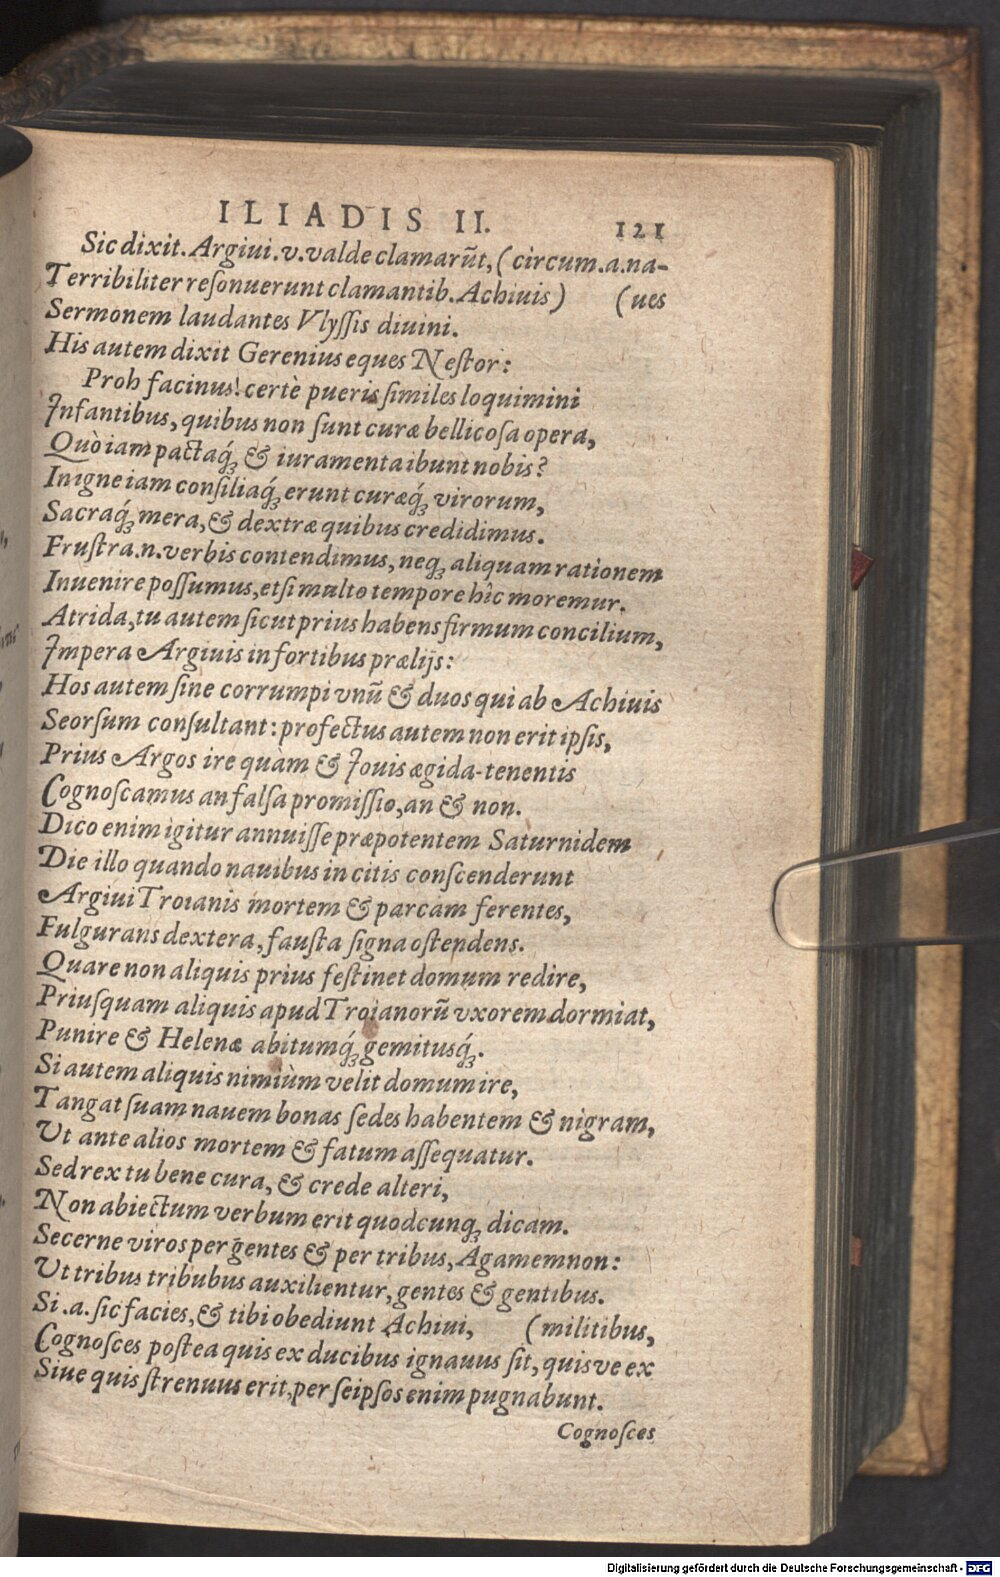 ILIADIS II. 121
Sic dixit. Argiui .v. valde clamarūt, ( circum .a. na-
Terribiliter resonuerunt clamantib. Achiuis ) ( ues
Sermonem laudantes Vlyssis diuini.
His autem dixit Gerenius eques Nestor:
Proh facinus! certè pueris similes loquimini
Infantibus, quibus non sunt curæ bellicosa opera,
Quò iam pactaq́; & iuramenta ibunt nobis?
In igne iam consiliaq́; erunt curæq́; virorum,
Sacraq́; mera, & dextræ quibus credidimus.
Frustra .n. verbis contendimus, neq; aliquam rationem
Inuenire possumus, etsi multo tempore hîc moremur.
Atrida, tu autem sicut prius habens firmum concilium,
Impera Argiuis in fortibus prælijs:
Hos autem sine corrumpi vnū & duos qui ab Achiuis
Seorsum consultant: profectus autem non erit ipsis,
Prius Argos ire quam & Iouis ægida-tenentis
Cognoscamus an falsa promissio, an & non.
Dico enim igitur annuisse præpotentem Saturnidem
Die illo quando nauibus in citis conscenderunt
Argiui Troianis mortem & parcam ferentes,
Fulgurans dextera, fausta signa ostendens.
Quare non aliquis prius festinet domum redire,
Priusquam aliquis apud Troianorū vxorem dormiat,
Punire & Helenæ abitumq́; gemitusq́;.
Si autem aliquis nimiùm velit domum ire,
Tangat suam nauem bonas sedes habentem & nigram,
Ut ante alios mortem & fatum assequatur.
Sed rex tu bene cura, & crede alteri,
Non abiectum verbum erit quodcunq; dicam.
Secerne viros per gentes & per tribus, Agamemnon:
Ut tribus tribubus auxilientur, gentes & gentibus.
Si .a. sic facies, & tibi obediunt Achiui, ( militibus,
Cognosces postea quis ex ducibus ignauus sit, quis ve ex
Siue quis strenuus erit, per seipsos enim pugnabunt.
Cognosces
Digitalisierung gefördert durch die Deutsche Forschungsgemeinschaft - DFG